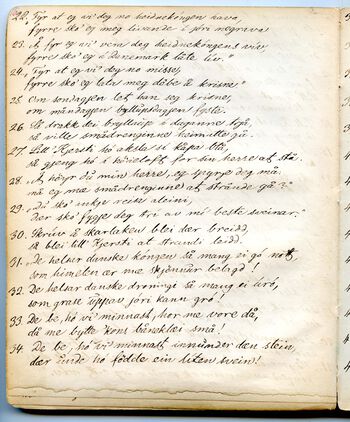 22. Fyr at eg vi deg no heidnekongen hava,
fyrre ska eg meg livande i jóri negrava
23. "Å fyr eg vi vera deg heidnekongens viv
fyrre ska eg i Danemark láte liv."
24. "Fyr at eg vi deg no misse,
fyrre ska eg lata meg döbe å krisne"
25. Om sondagjen let han seg krisne,
om måndagjen bryllupsdagjen lyste.
26. Så drakk dei bryllaup i dagane två,
så ville smådrenginne heimatte gå.
27. Litl Kjersti ho aksla si kåpa blå,
så gjeng ho i höieloft for sin herre at stå.
28. "Å, höyr du min herre, eg spyrje deg må:
må eg me smådrenginne at strande gå?"
29. "Du ska inkje reise aleini,
Der ska fygje deg tri av mi beste sveinar."
30. Skriv å skarlaken blei der breidd,
så blei litl Kjersti at strandi leidd.
31. "De helsar danske kongen så mang ei go nott,
som himelen ær me stjönnur belagd!
32. De helsar danske droningi så mang ei tiró,
som grase uppav jóri kann gró!
33. De be, ho vi minnast, hor me vore då,
då me bytte kons bånekléi små!
34. De be, ho vi minnast innunder den stein,
dær unde ho födde ein liten svein!